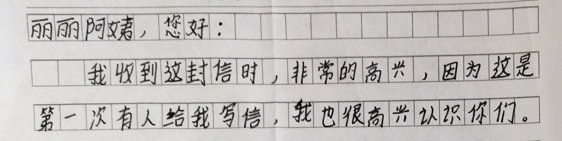 丽丽阿姨，您好：
我收到这封信时，非常的高兴，因为这是
第一次有人给我写信，我也很高兴认识你们。